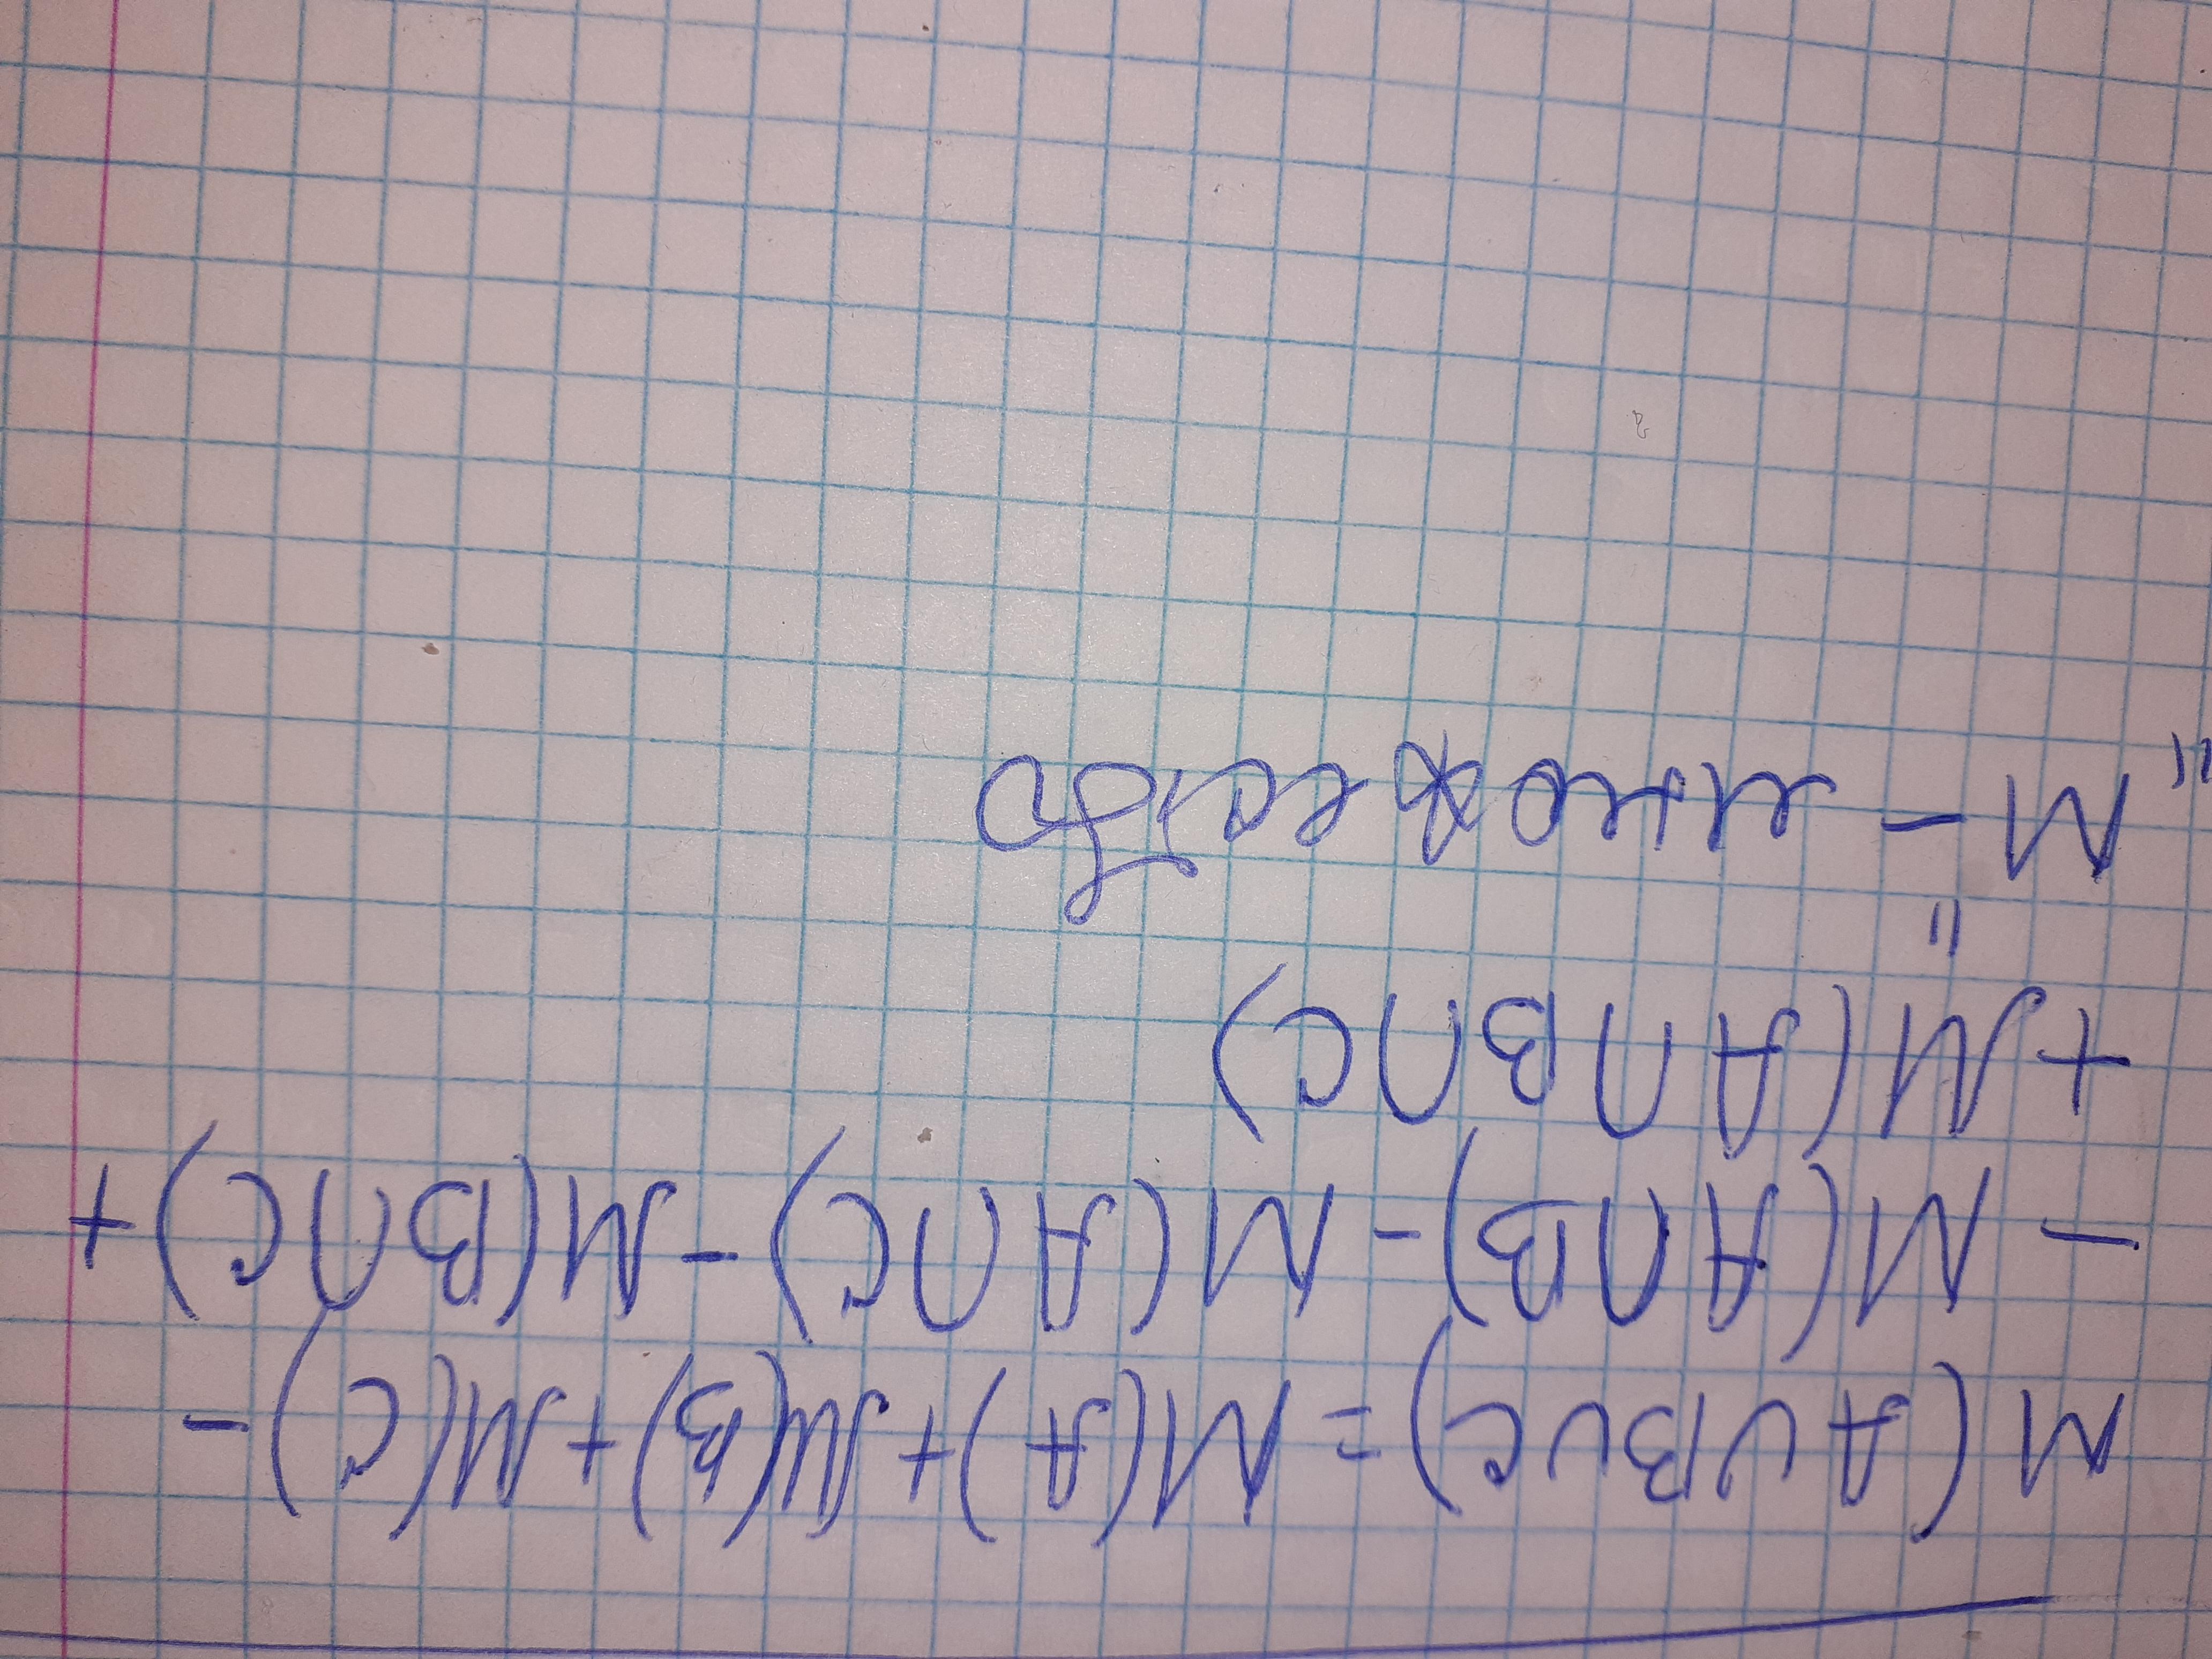 M(A∪B∪C)=M(A)+M(B)+M(C)-
-M(A∩B)-M(A∩C)-M(B∩C)+
+M(A∩B∩C)
"M-множество"